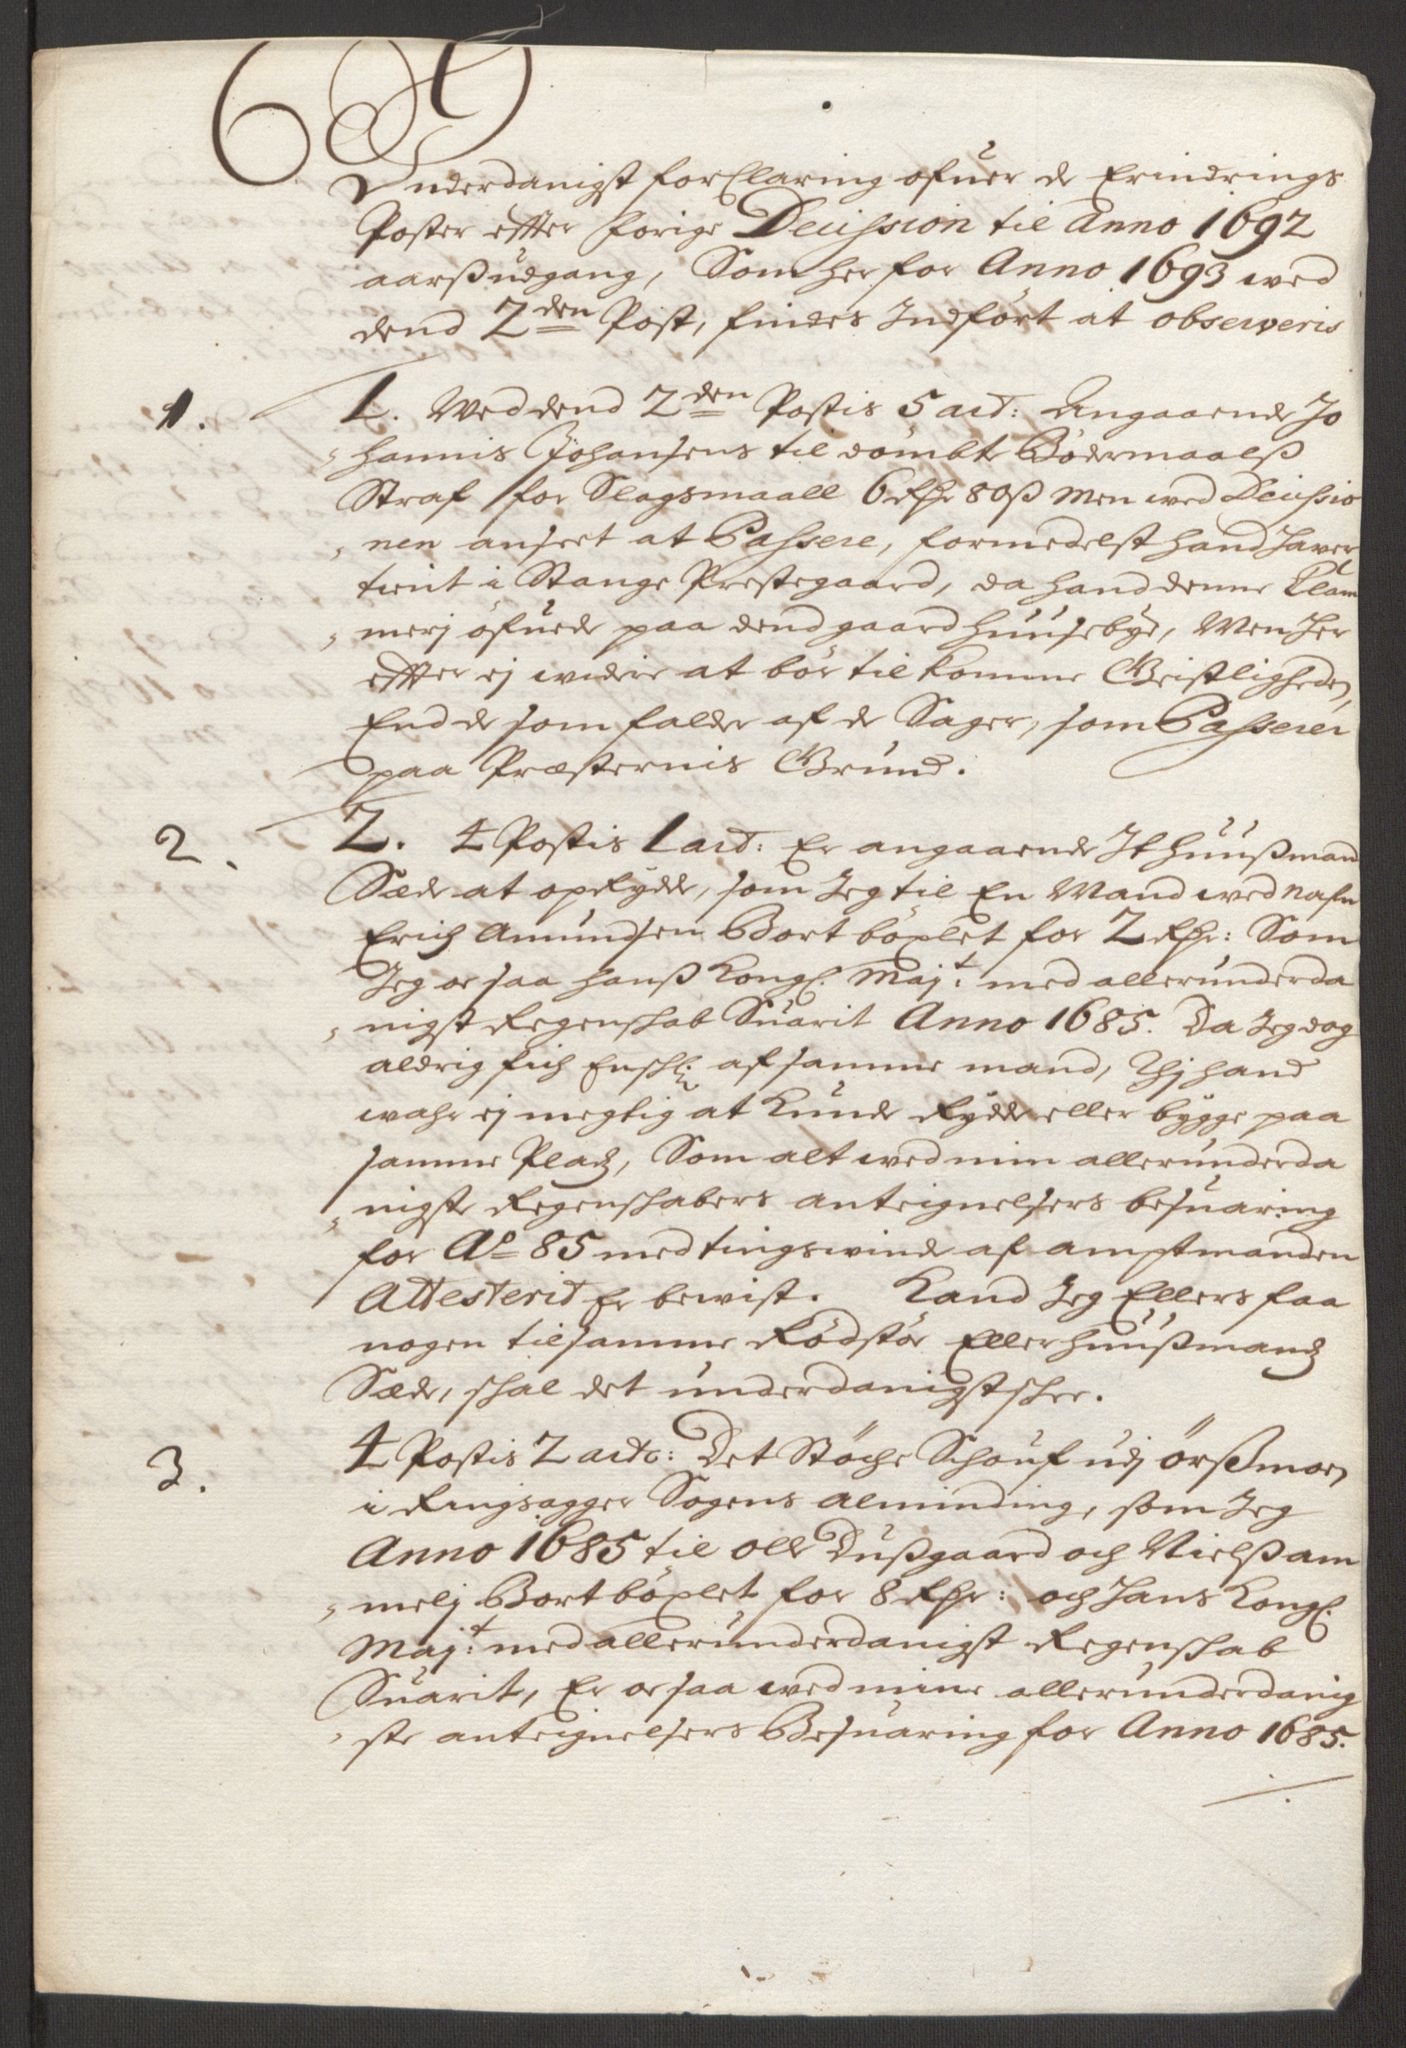 Underdanigst forClaring ofuer de Erindrings
Poster effter forige Decission til Anno 1692
aarß udgang, Som her for Anno 1693 wed
dend 2den Post, findes Indfört at observeris
1. 1. Wed dend 2den Postis 5 art: Angaaende Jo
hannis Johansens til dömbte Bödermaalß
Straf for Slagsmaall 6 Rdr 80ß Men wed Decissio
nen anseet at Passere, formedelst hand haver
tient i Stange Prestegaard, da hand denne Clam
merj öfuede paa dend gaard Huusebye, Men her
effter ej widere at bör tilkomme Geistligheden,
End de som falder af de Sager, som Passerer
paa Præsternis Grund.
2. 2. 4 Postis 1 art: Er angaaende It Huußmand
Sæde at oprydde, som Jeg til En Mand wed nafn
Erich Amundsen Bortböxlet for 2 Rdr: Som
Jeg ocsaa hanß Kongl. Majt: med allerunderda
nigst Regenschab Suarit Anno 1685. Da Jeg dog
aldrig fich Ensch: af samme mand, Thj hand
wahr ej megtig at kunde Rydde eller bygge paa
samme Pladz, Som alt wed min allerunderda
nigste Regenschabers anteignelsers besuaring
for Ao 85 med tingswinde af amptmanden
Attesterit Er bewist. Kand Jeg Ellers faa
nogen til samme Rödstör Eller huußmandz
Sæde, schal det underdanigst schee.
3. 4 Postis 2 art: Det Stöche Schouf udj Örßmoen
i Ringsagger Sogens alminding, som Jeg
Anno 1685 til Olle Dußgaard och Nielß am
melj Bortböxlet for 8 Rdr: och hans Kongl.
Majt: med allerunderdanigst Regenschab
Suarit, Er ocsaa wed mine allerunderdanig
ste anteignelsers Besuaring for Anno 1685.